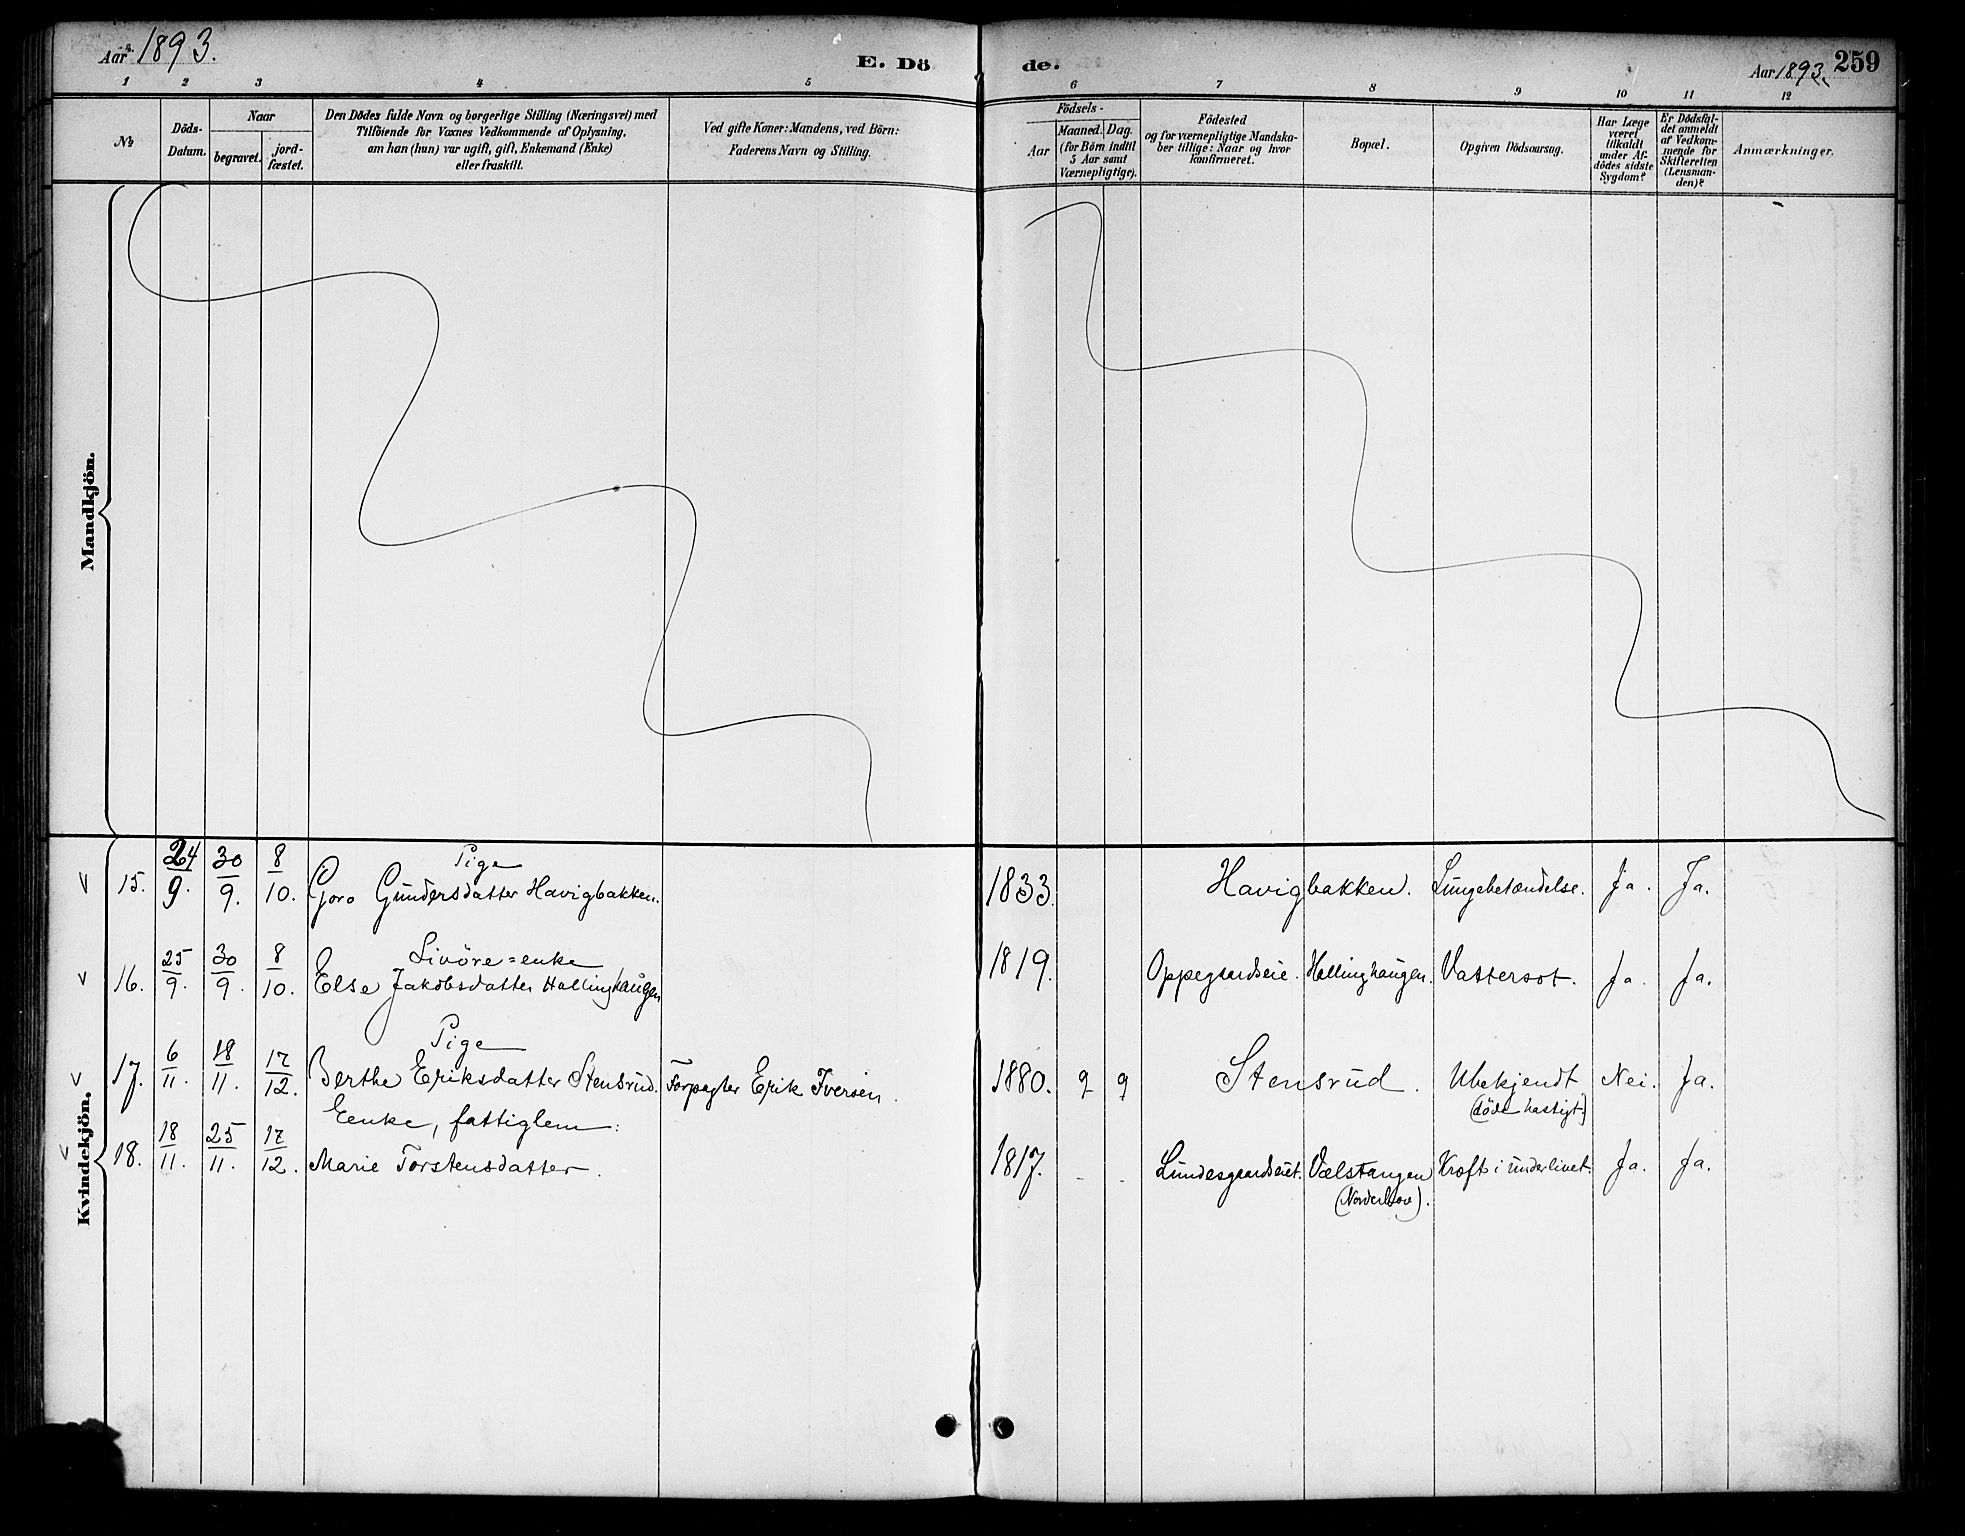 Aar 1893.
E. Dö
de.
Aar 1893.
259
1 2 3 4 5 6 7 8 9 10 11 12
№
Döds-
Datum.
Naar
begravet.
jord-
fæstet.
Den Dödes fulde Navn og borgerlige Stilling (Næringsvei) med
Tilföiende for Voxnes Vedkommende af Oplysning,
om han (hun) var ugift, gift, Enkemand (Enke)
eller fraskilt.
Ved gifte Koner: Mandens, ved Börn:
Faderens Navn og Stilling.
Födsels-
Aar
Maaned. Dag.
(for Börn indtil
5 Aar samt
Værnepligtige).
Födested
og for værnepligtige Mandska-
ber tillige: Naar og hvor
konfirmeret.
Bopæl.
Opgiven Dödsaarsag.
Har Læge
været
tilkaldt
under Af-
dödes sidste
Sygdom?
Er Dödsfal-
det anmeldt
af Vedkom-
mende for
Skifteretten
(Lensman-
den)?
Anmærkninger.
Mandkjön.
Kvindekjön.
Pige
15. 24/9. 30/9. 8/10. Goro Gundersdatter Havigbakken. 1833. Havigbakken. Lungebetændelse. Ja. Ja.
enke
16. 25/9. 30/9. 8/10. Else Jakobsdatter Hallinghaugen 1819. Oppegaardseie. Hallinghaugen. Vattersot. Ja. Ja.
Pige
17. 6/11. 18/11. 17/12. Berthe Eriksdatter Stensrud. Forpagter Erik Iversen. 1880. 9 9 Stensrud. Ubekjendt Nei. Ja.
(døde hastigt)
Eenke, fattiglem:
18. 18/11. 25/11. 17/12. Marie Torstensdatter. 1817. - - Lundesgaardseiet. Vælstangen Kræft i underlivet. Ja. Ja.
(Norderhov).